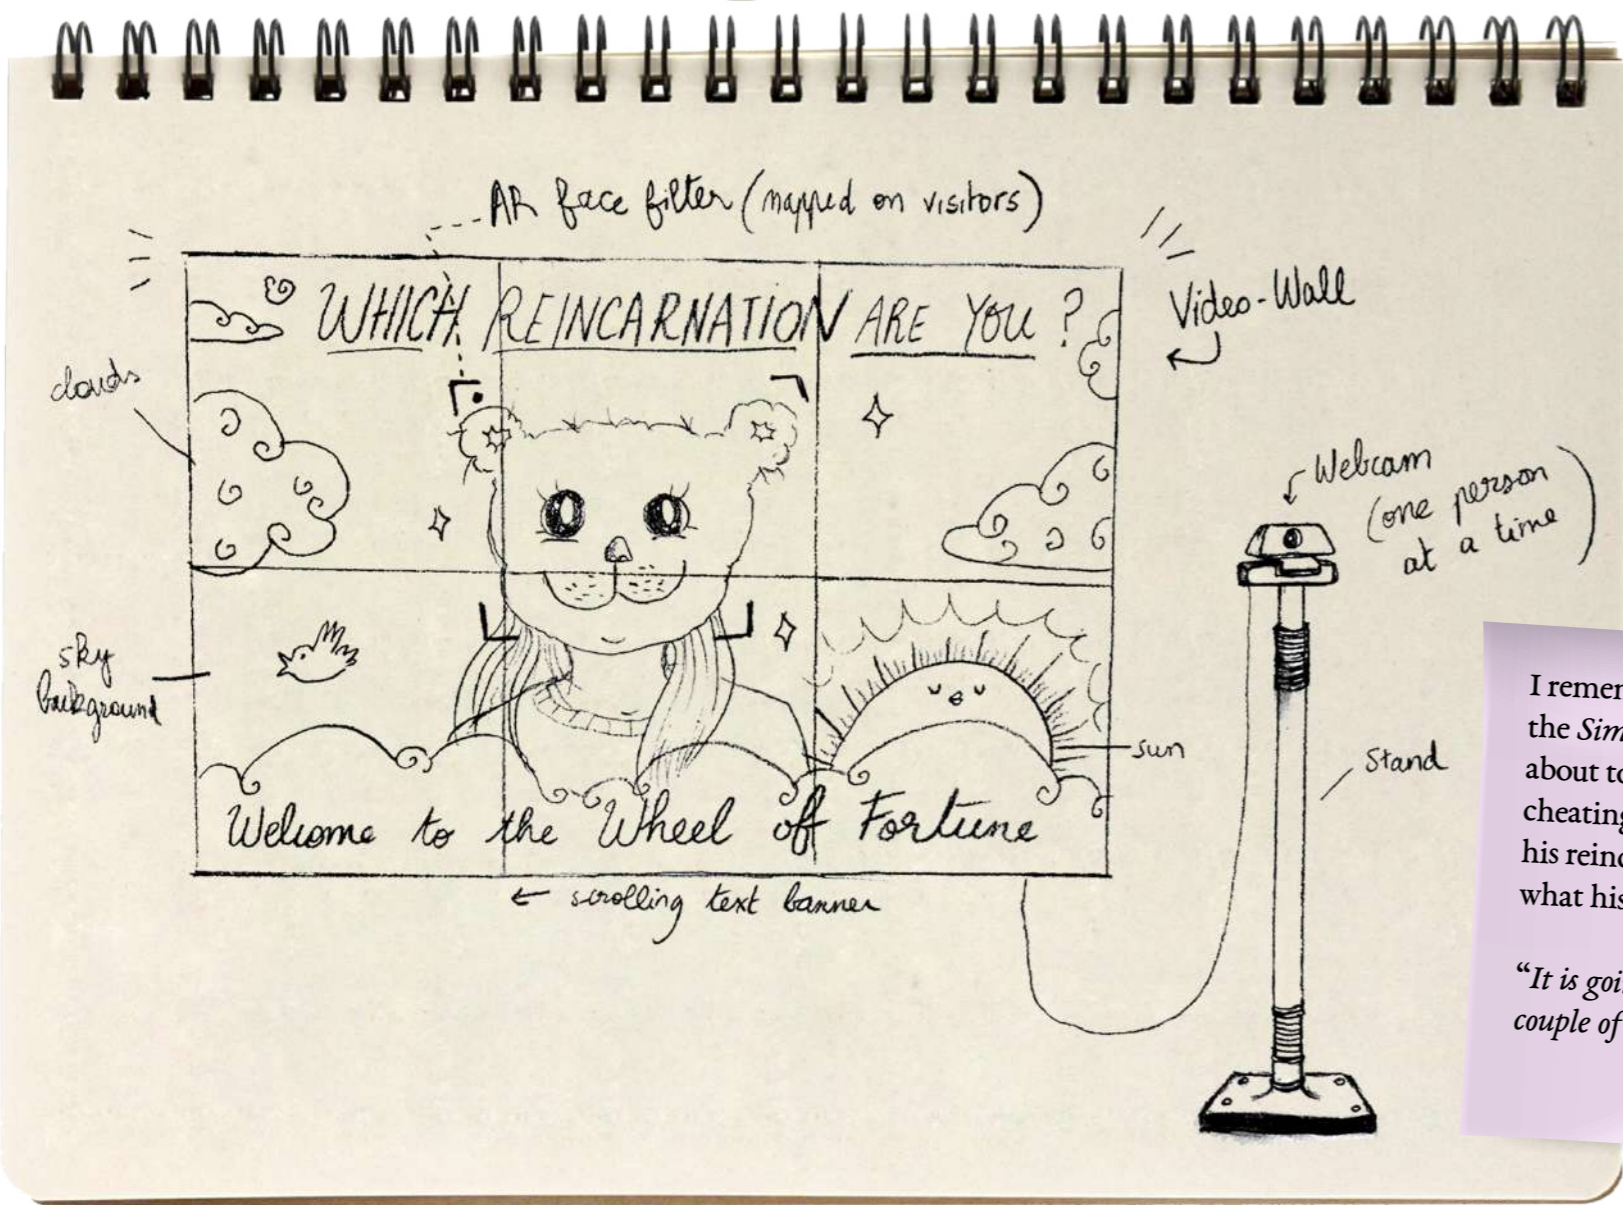 AR face filter (mapped on visitors)
WHICH REINCARNATION ARE YOU ?
Video-Wall
clouds
Webcam
(one person
at a time)
sky
background
sun
Stand
Welcome to the Wheel off Fortune
← scrolling text banner
I remem
the Sim
about to
cheating
his reinc
what his
“It is goi
couple of